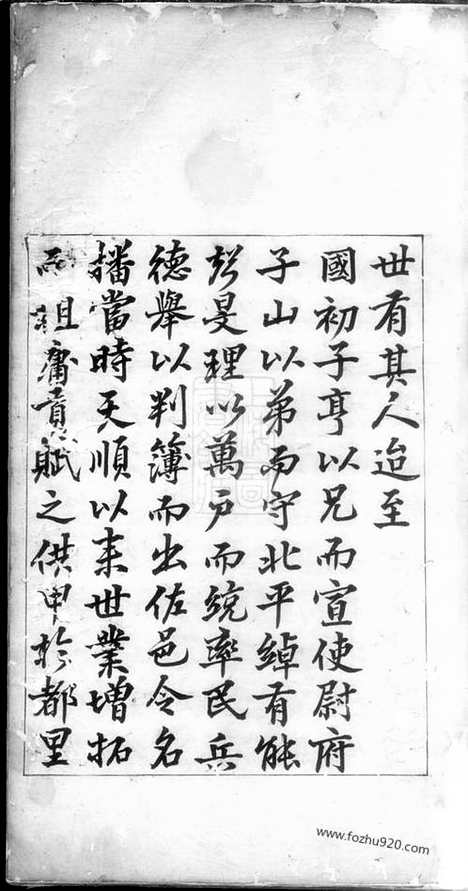 世有其人迨至
國初子亨以兄而宣使尉府
子山以弟而守北平綽有能
聲旻理以萬戶而統率民兵
德舉以判簿而出佐邑令名
播當時天順以来世業增拓
而租庸貢賦之供甲於都里
www.fozhu920.com